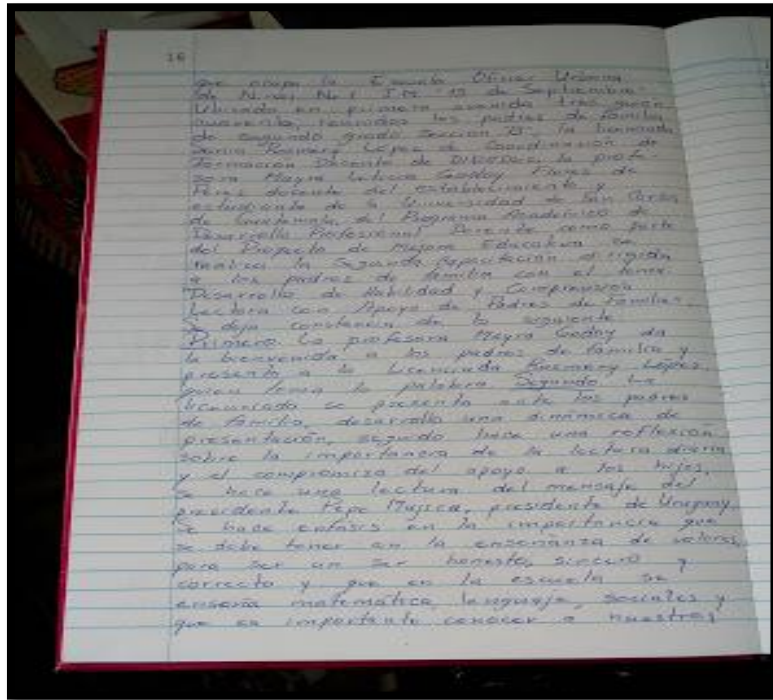 16
que ocupa la Escuela Oficial Urbana
de Niñas No 1 J.M. "15 de Septiembre"
Ubicada en primera avenida tres guión
cuarenta, reunidos los padres de familia
de segundo grado sección "B", la licenciada
Sonia Rosmery López de Coordinación de
Formación Docente de la profe-
sora Mayra Leticia Godoy Flores de
Pérez docente del establecimiento y
estudiante de la Universidad de San Carlos
de Guatemala, del Programa Académico de
Desarrollo Profesional Docente como parte
del Proyecto de Mejora Educativa se
realiza la Segunda Capacitación dirigida
a los padres de familia con el tema:
Desarrollo de Habilidad y Comprensión
Lectora con Apoyo de Padres de Familias.
Se deja constancia de lo siguiente.
Primero: La profesora Mayra Godoy da
la bienvenida a los padres de familia y
presenta a la Licenciada Rosmery López.
quien toma la palabra Segundo La
licenciada se presenta ante los padres
de familia, desarrolla una dinámica de
presentación, seguido hace una reflexión
sobre la importancia de la lectura diaria
y el compromiso del apoyo a los hijos,
se hace una lectura del mensaje del
presidente Pepe Mujica, presidente de Uruguay.
Se hace enfasis en la importancia que
se debe tener en la enseñanza de valores,
para ser un ser honesto, sincero y
correcto y que en la escuela se
enseña matemática, lenguaje, sociales y
que es importante conocer a nuestros